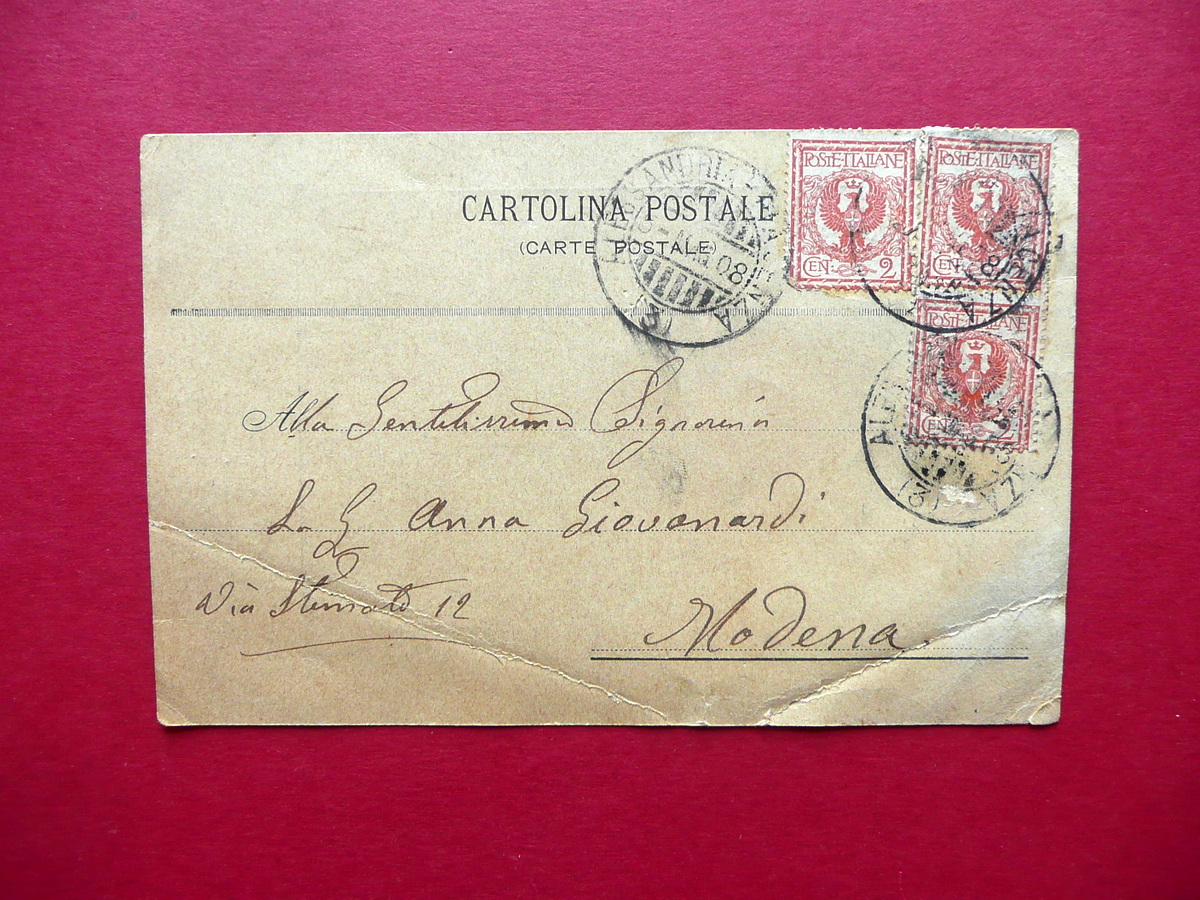 CARTOLINA POSTALE
(CARTE POSTALE)
POSTE·ITALIANE
CEN: 2
POSTE·ITALIANE
CEN: 2
POSTE·ITALIANE
CEN 2
ALESSANDRIA
08
(3)
Alla Gentilissima Signorina
Anna Giovanardi
Via 12
Modena